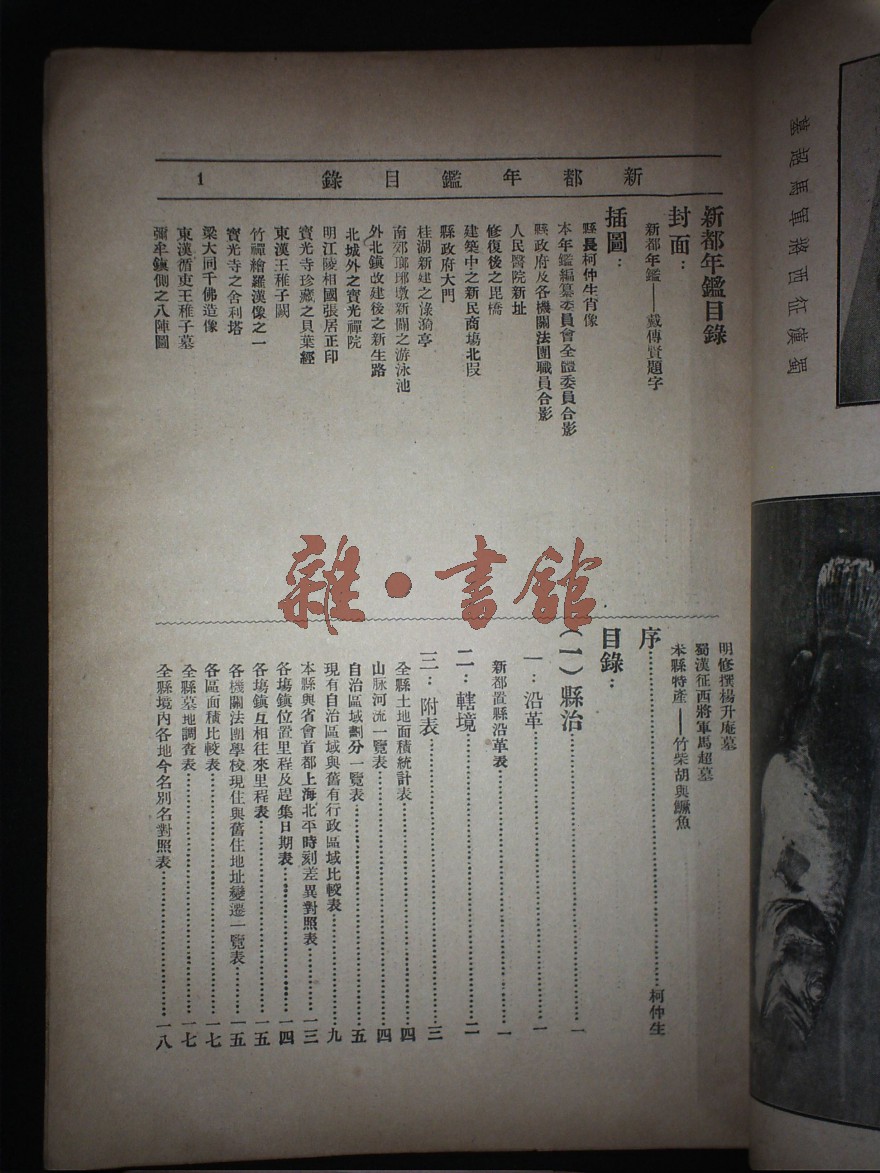 新都年鑑目錄 1
新都年鑑目錄
封面：
新都年鑑——戴傳賢題字
插圖：
縣長柯仲生肖像
本年鑑編纂委員會全體委員合影
縣政府及各機關法團職員合影
人民醫院新址
修復後之毘橋
建築中之新民商場北段
縣政府大門
桂湖新建之淥漪亭
南郊瑯琊墩新闢之游泳池
外北鎮改建後之新生路
北城外之寶光禪院
明江陵相國張居正印
寶光寺珍藏之貝葉經
東漢王稚子闕
竹禪繪羅漢像之一
寶光寺之舍利塔
梁大同千佛造像
東漢循吏王稚子墓
彌牟鎮側之八陣圖
明修撰楊升庵墓
蜀漢征西將軍馬超墓
本縣特產——竹柴胡與鱖魚
序……柯仲生
目錄：
（一）縣治……一
一：沿革……一
新都置縣沿革表……一
二：轄境……二
三：附表……三
全縣土地面積統計表……四
山脉河流一覽表……四
自治區域劃分一覽表……五
現有自治區域與舊有行政區域比較表……九
本縣與省會首都上海北平時刻差異對照表……一三
各場鎮位置里程及趕集日期表……一四
各場鎮互相往來里程表……一五
各機關法團學校現住與舊住地址變遷一覽表……一五
各區面積比較表……一七
全縣墓地調查表……一七
全縣境內各地今名別名對照表……一八
蜀漢征西將軍馬超墓
雜·書館